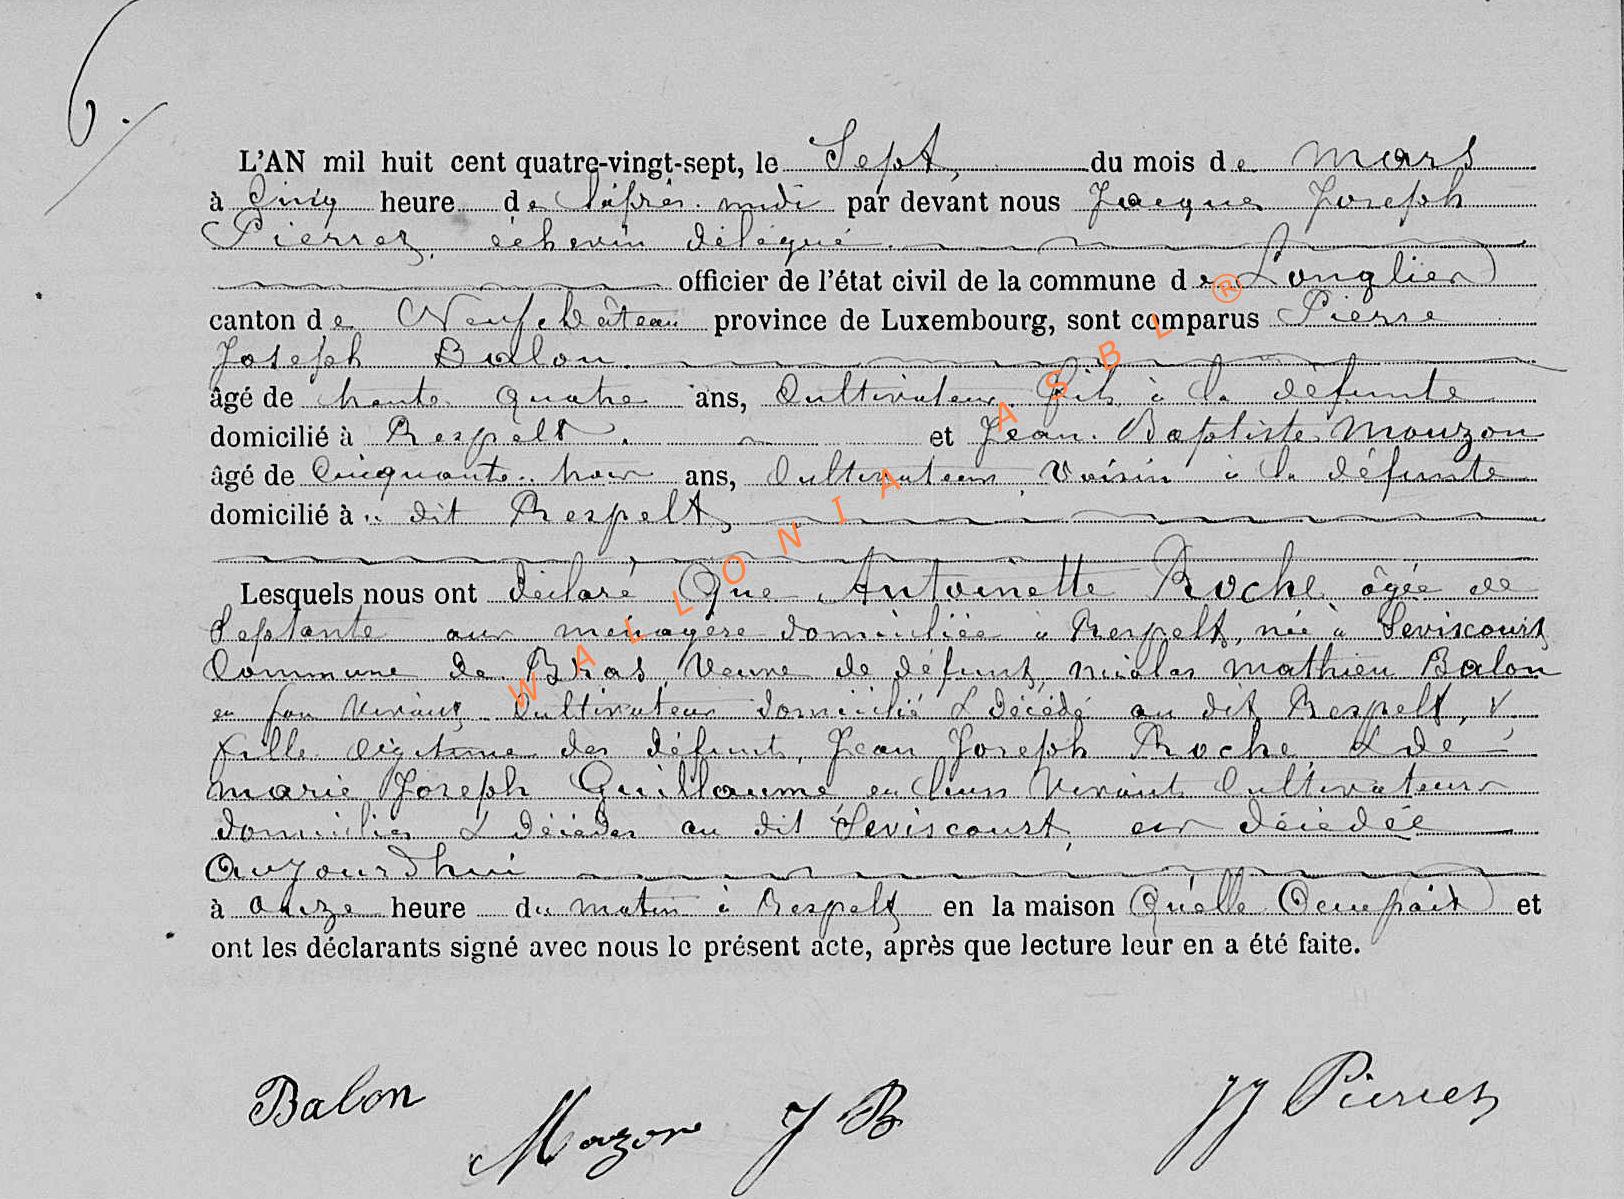 6.
L'AN mil huit cent quatre-vingt-sept, le Sept, du mois de mars
à Cinq heure de l'après-midi par devant nous Jacques Joseph
Pierret, échevin délégué
officier de l'état civil de la commune de Longlier
canton de Neufchâteau province de Luxembourg, sont comparus Pierre
Joseph Balon
âgé de trente quatre ans, Cultivateur fils à la défunte
domicilié à Respelt. et Jean-Baptiste Mouzon
âgé de Cinquante-trois ans, Cultivateur, Voisin à la défunte
domicilié à dit Respelt,
Lesquels nous ont déclaré Que Antoinette Roche âgée de
Septante ans ménagère domiciliée à Respelt, née à Seviscourt
Commune de Bras, Veuve de défunt, nicolas mathieu Balon
en son vivant, Cultivateur domicilié & décédé au dit Respelt, &
fille légitime des défunts, Jean Joseph Roche, & de
marie Joseph Guillaume en leurs vivants Cultivateurs
domiciliés & décédés au dit Seviscourt, est décédée
Aujourdhui
à onze heure du matin à Respelt en la maison Qu'elle Occupait et
ont les déclarants signé avec nous le présent acte, après que lecture leur en a été faite.
Balon
Mozon J B
JJ Pierret
WALLONIA ASBL ®